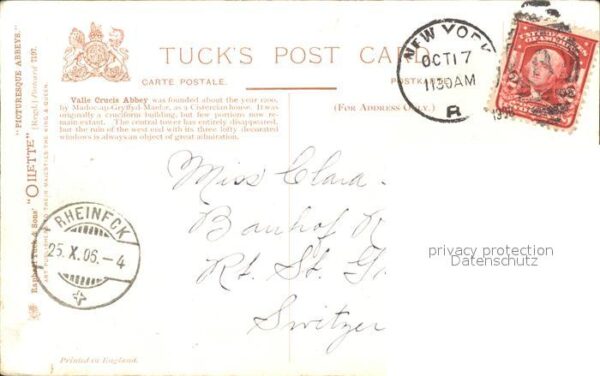 TUCK'S POST CARD
CARTE POSTALE.
POSTKARTE
Valle Crucis Abbey was founded about the year 1200,
by Madoc-ap-Gryffyd-Maelor, as a Cistercian house. It was
originally a cruciform building, but few portions now re-
main extant. The central tower has entirely disappeared,
but the ruin of the west end with its three lofty decorated
windows is always an object of great admiration.
(FOR ADDRESS ONLY.)
NEW YORK
OCT 17
11 30 AM
R
UNITED STATES
OF AMERICA
Raphael Tuck & Sons' "OILETTE" "PICTURESQUE ABBEYS."
[Regd.] Postcard 7197.
ART PUBLISHERS TO THEIR MAJESTIES THE KING & QUEEN.
RHEINECK
25. X. 06. - 4
Miss Clara
Banhof R
Kt. St. G
Switzer
privacy protection
Datenschutz
Printed in England.